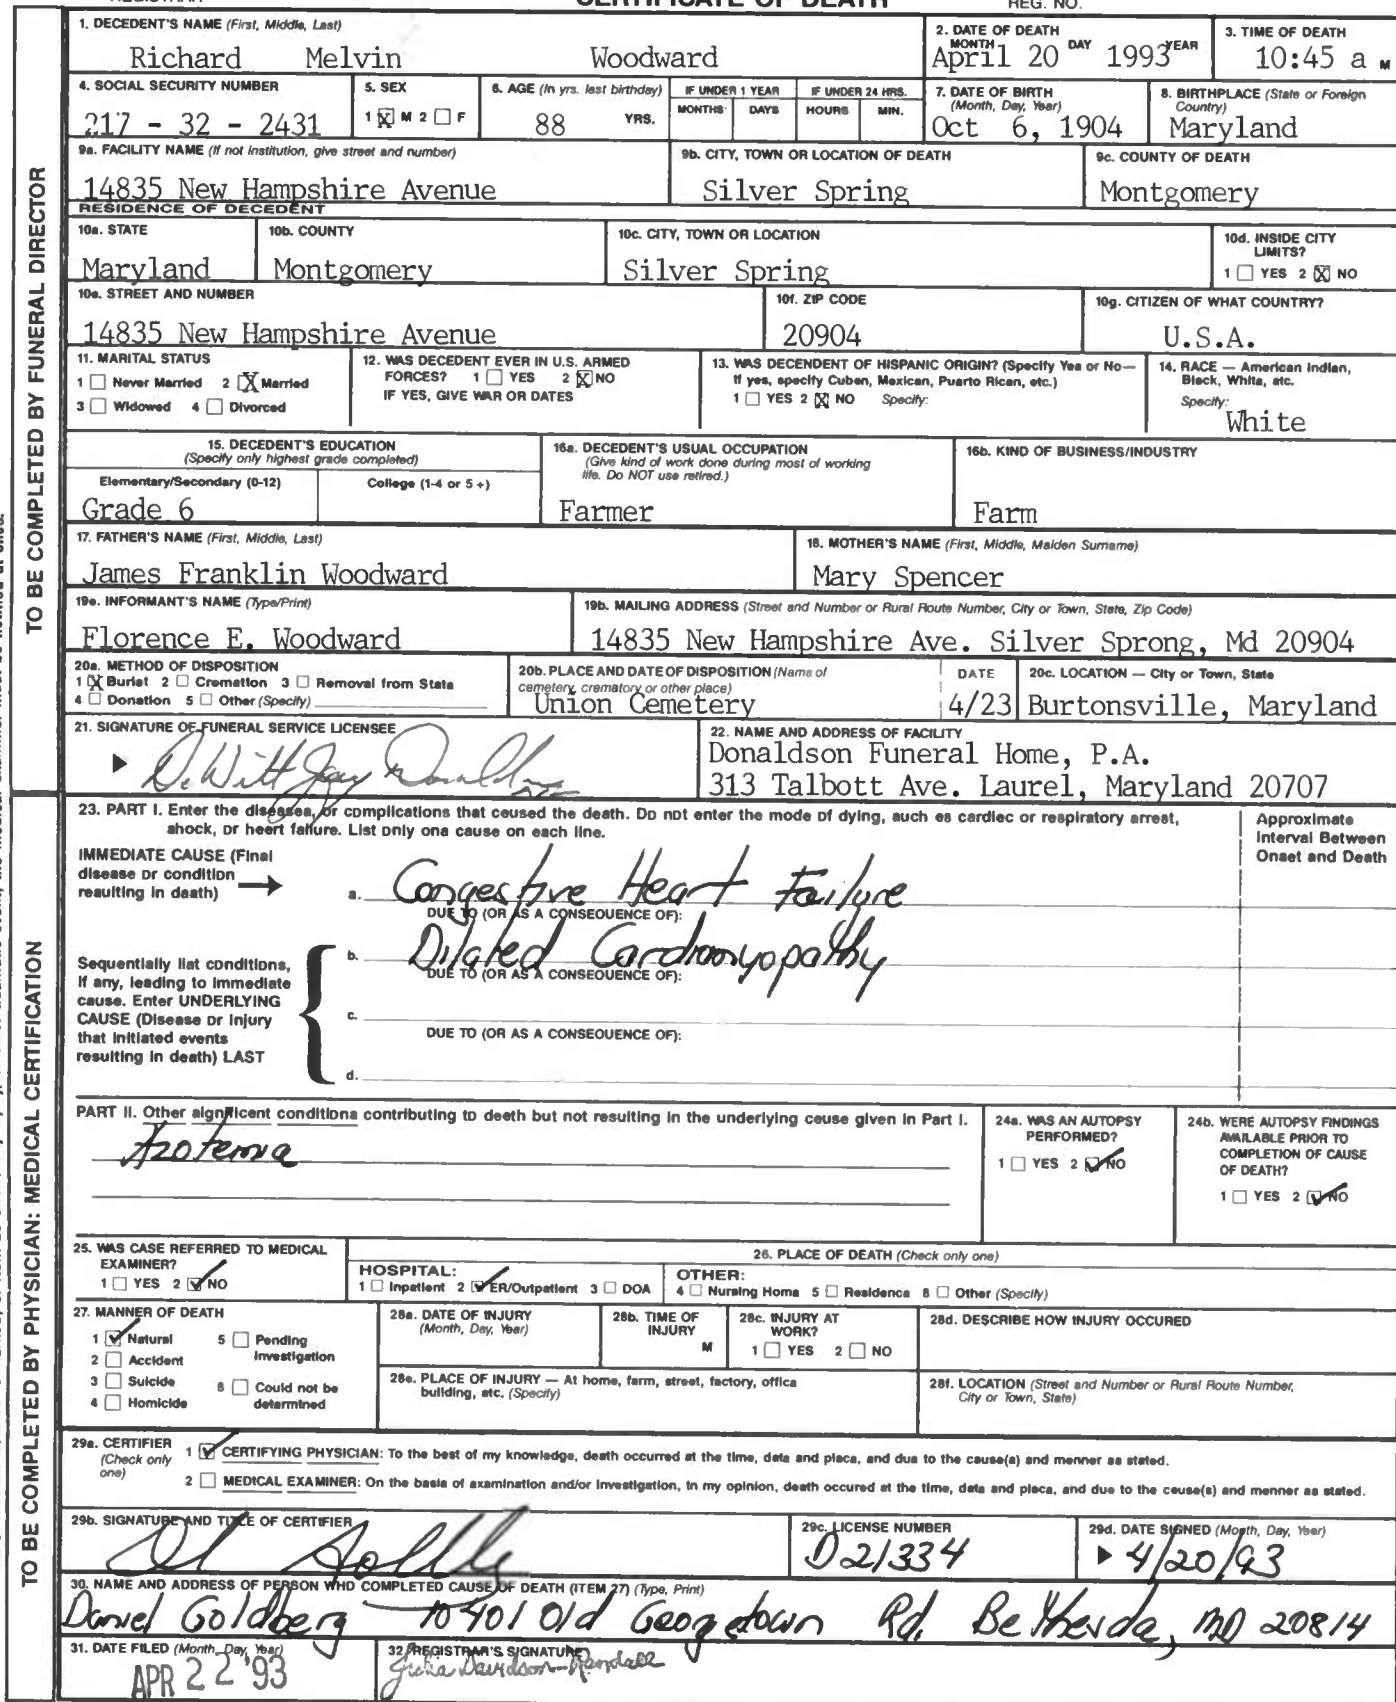 CERTIFICATE OF DEATH
REG. NO.
1. DECEDENT'S NAME (First, Middle, Last)
Richard Melvin Woodward
2. DATE OF DEATH
MONTH DAY YEAR
April 20 1993
3. TIME OF DEATH
10:45 a M
4. SOCIAL SECURITY NUMBER
217 - 32 - 2431
5. SEX
1 X M 2 F
6. AGE (In yrs. last birthday)
88 YRS.
IF UNDER 1 YEAR
MONTHS DAYS
IF UNDER 24 HRS.
HOURS MIN.
7. DATE OF BIRTH
(Month, Day, Year)
Oct 6, 1904
8. BIRTHPLACE (State or Foreign
Country)
Maryland
9a. FACILITY NAME (If not institution, give street and number)
14835 New Hampshire Avenue
9b. CITY, TOWN OR LOCATION OF DEATH
Silver Spring
9c. COUNTY OF DEATH
Montgomery
RESIDENCE OF DECEDENT
10a. STATE
Maryland
10b. COUNTY
Montgomery
10c. CITY, TOWN OR LOCATION
Silver Spring
10d. INSIDE CITY
LIMITS?
1 YES 2 X NO
10e. STREET AND NUMBER
14835 New Hampshire Avenue
10f. ZIP CODE
20904
10g. CITIZEN OF WHAT COUNTRY?
U.S.A.
11. MARITAL STATUS
1 Never Married 2 X Married
3 Widowed 4 Divorced
12. WAS DECEDENT EVER IN U.S. ARMED
FORCES? 1 YES 2 X NO
IF YES, GIVE WAR OR DATES
13. WAS DECENDENT OF HISPANIC ORIGIN? (Specify Yes or No—
If yes, specify Cuban, Mexican, Puerto Rican, etc.)
1 YES 2 X NO Specify:
14. RACE — American Indian,
Black, White, etc.
Specify:
White
15. DECEDENT'S EDUCATION
(Specify only highest grade completed)
Elementary/Secondary (0-12) College (1-4 or 5 +)
Grade 6
16a. DECEDENT'S USUAL OCCUPATION
(Give kind of work done during most of working
life. Do NOT use retired.)
Farmer
16b. KIND OF BUSINESS/INDUSTRY
Farm
17. FATHER'S NAME (First, Middle, Last)
James Franklin Woodward
18. MOTHER'S NAME (First, Middle, Maiden Surname)
Mary Spencer
19a. INFORMANT'S NAME (Type/Print)
Florence E. Woodward
19b. MAILING ADDRESS (Street and Number or Rural Route Number, City or Town, State, Zip Code)
14835 New Hampshire Ave. Silver Sprong, Md 20904
20a. METHOD OF DISPOSITION
1 X Burial 2 Cremation 3 Removal from State
4 Donation 5 Other (Specify)
20b. PLACE AND DATE OF DISPOSITION (Name of
cemetery, crematory or other place)
Union Cemetery
DATE
4/23
20c. LOCATION — City or Town, State
Burtonsville, Maryland
21. SIGNATURE OF FUNERAL SERVICE LICENSEE
DeWitt Jay Donaldson
22. NAME AND ADDRESS OF FACILITY
Donaldson Funeral Home, P.A.
313 Talbott Ave. Laurel, Maryland 20707
TO BE COMPLETED BY FUNERAL DIRECTOR
23. PART I. Enter the diseases, or complications that caused the death. Do not enter the mode of dying, such as cardiac or respiratory arrest,
shock, or heart failure. List only one cause on each line.
Approximate
Interval Between
Onset and Death
IMMEDIATE CAUSE (Final
disease or condition
resulting in death)
a. Congestive Heart Failure
DUE TO (OR AS A CONSEQUENCE OF):
b. Dilated Cardiomyopathy
DUE TO (OR AS A CONSEQUENCE OF):
c.
DUE TO (OR AS A CONSEQUENCE OF):
d.
Sequentially list conditions,
If any, leading to immediate
cause. Enter UNDERLYING
CAUSE (Disease or injury
that initiated events
resulting in death) LAST
PART II. Other significant conditions contributing to death but not resulting in the underlying cause given in Part I.
Azotemia
24a. WAS AN AUTOPSY
PERFORMED?
1 YES 2 ✓ NO
24b. WERE AUTOPSY FINDINGS
AVAILABLE PRIOR TO
COMPLETION OF CAUSE
OF DEATH?
1 YES 2 ✓ NO
25. WAS CASE REFERRED TO MEDICAL
EXAMINER?
1 YES 2 ✓ NO
26. PLACE OF DEATH (Check only one)
HOSPITAL:
1 Inpatient 2 ✓ ER/Outpatient 3 DOA
OTHER:
4 Nursing Home 5 Residence 6 Other (Specify)
27. MANNER OF DEATH
1 ✓ Natural 5 Pending
Investigation
2 Accident
3 Suicide 6 Could not be
4 Homicide determined
28a. DATE OF INJURY
(Month, Day, Year)
28b. TIME OF
INJURY
M
28c. INJURY AT
WORK?
1 YES 2 NO
28d. DESCRIBE HOW INJURY OCCURED
28e. PLACE OF INJURY — At home, farm, street, factory, office
building, etc. (Specify)
28f. LOCATION (Street and Number or Rural Route Number,
City or Town, State)
29a. CERTIFIER
(Check only
one)
1 ✓ CERTIFYING PHYSICIAN: To the best of my knowledge, death occurred at the time, date and place, and due to the cause(s) and manner as stated.
2 MEDICAL EXAMINER: On the basis of examination and/or investigation, in my opinion, death occured at the time, date and place, and due to the cause(s) and manner as stated.
29b. SIGNATURE AND TITLE OF CERTIFIER
29c. LICENSE NUMBER
D21334
29d. DATE SIGNED (Month, Day, Year)
4/20/93
30. NAME AND ADDRESS OF PERSON WHO COMPLETED CAUSE OF DEATH (ITEM 27) (Type, Print)
Daniel Goldberg 10401 Old Georgetown Rd, Bethesda, MD 20814
31. DATE FILED (Month, Day, Year)
APR 22 '93
32. REGISTRAR'S SIGNATURE
Julia Davidson-Randall
TO BE COMPLETED BY PHYSICIAN: MEDICAL CERTIFICATION